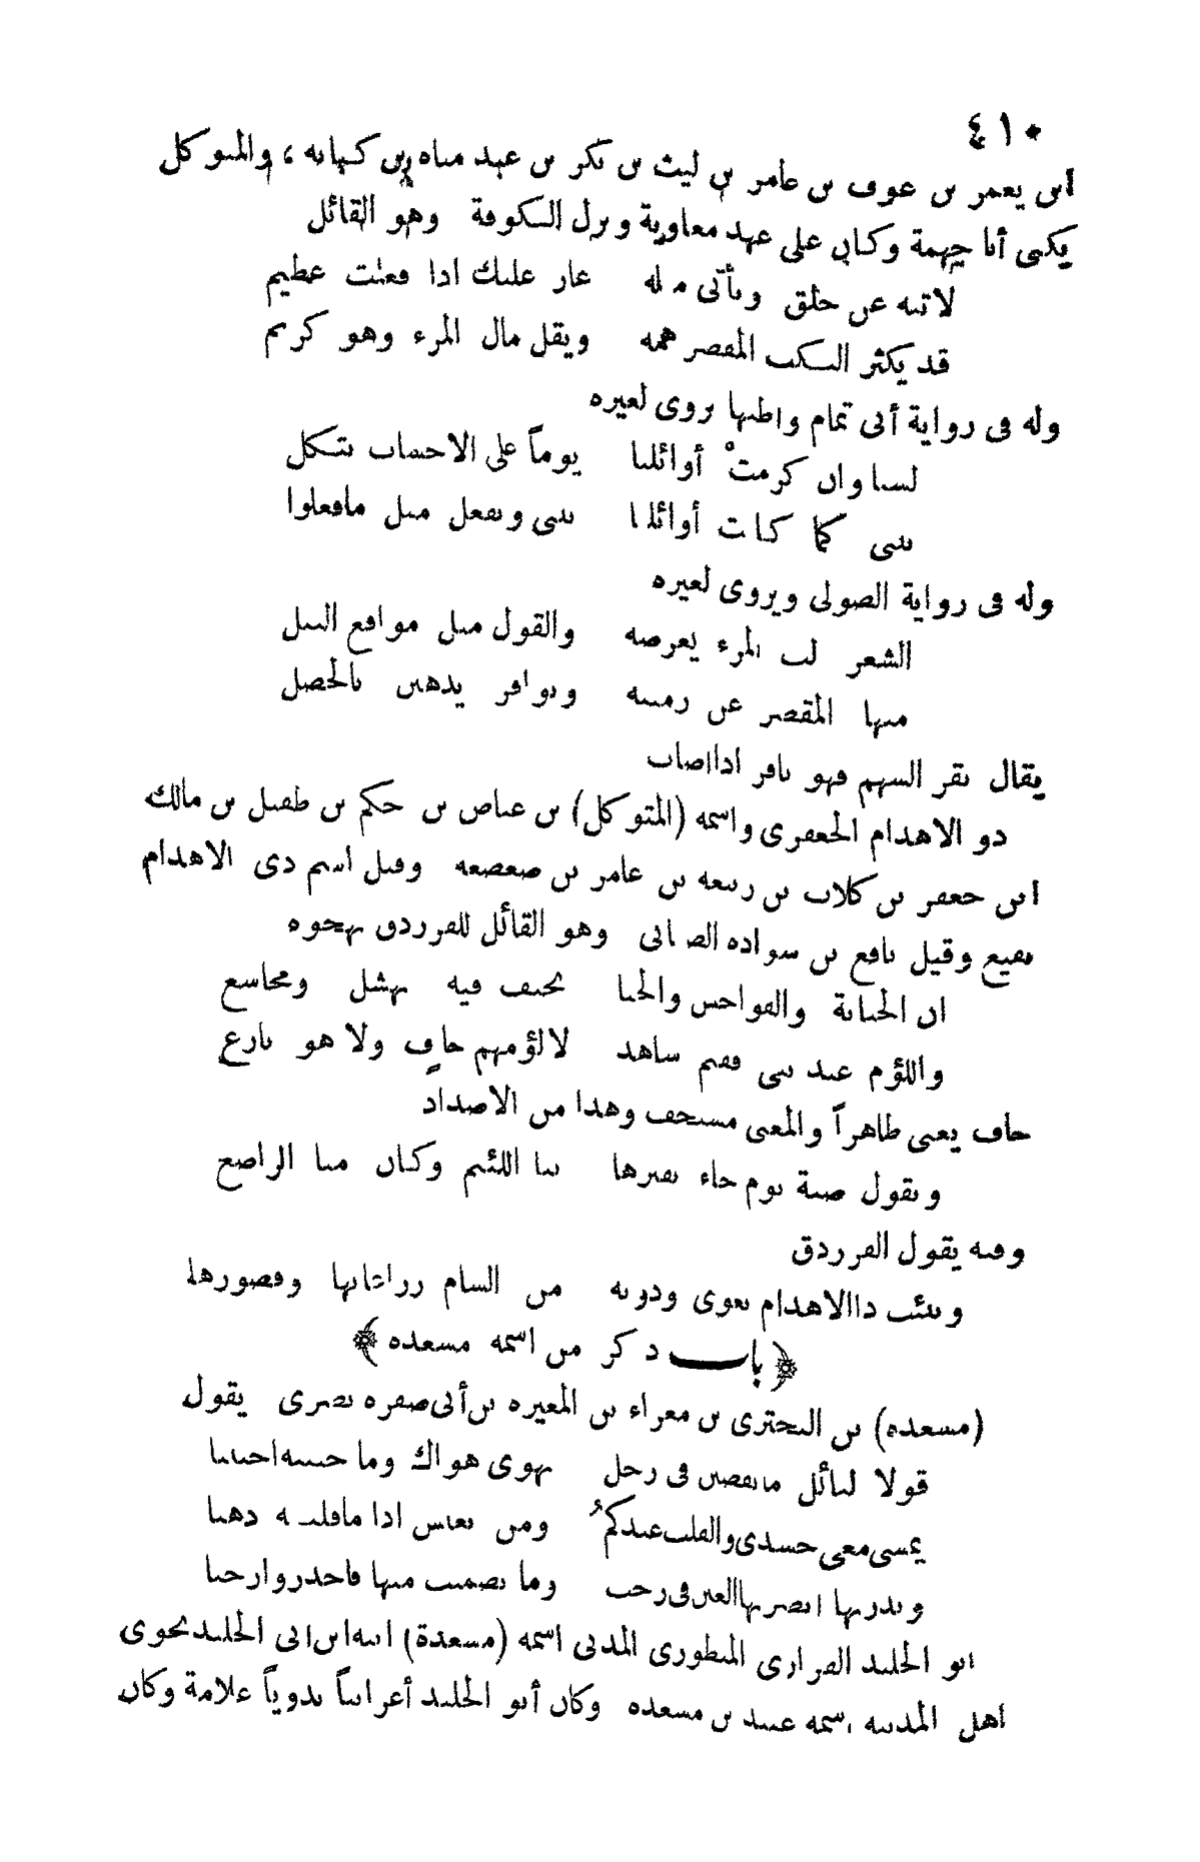 ٤١٠
ابن يعمر بن عوف بن عامر بن ليث بن بكر بن عبد مناه بن كنانه ، والمتوكل
يكنى أبا جهمة وكان على عهد معاوية ونزل الكوفة وهو القائل
لاتنه عن خلق وتأتى مثله عار عليك اذا فعلت عظيم
قد يكثر النكس المقصر همه ويقل مال المرء وهو كريم
وله فى رواية أبى تمام واظنها تروى لغيره
لسنا وان كرمتْ أوائلنا يوماً على الاحساب نتكل
نبنى كما كانت أوائلنا تبنى ونفعل مثل مافعلوا
وله فى رواية الصولى ويروى لغيره
الشعر لب المرء يعرضه والقول مثل مواقع النبل
منها المقصر عن رميته ونوافر يذهبن بالخصل
يقال نقر السهم فهو نافر اذااصاب
ذو الاهدام الجعفرى واسمه (المتوكل) بن عياض بن حكم بن طفيل بن مالك
ابن جعفر بن كلاب بن ربيعه بن عامر بن صعصعه وقيل اسم ذى الاهدام
نفيع وقيل نافع بن سواده الضبابى وهو القائل للفرزدق يهجوه
ان الخيانة والفواحش والخنا تختف فيه نهشل ومجاشع
واللؤم عند بنى فقيم شاهد لالؤمهم خاف ولا هو نازع
خاف يعنى ظاهراً والمعنى مستخف وهذا من الاضداد
ويقول ضبة يوم جاء نفيرها بنا اللئيم وكان منا الراضع
وفيه يقول الفرزدق
ونبئت ذاالاهدام يعوى ودونه من الشام زراعاتها وقصورها
﴿باب ذكر من اسمه مسعده﴾
(مسعده) بن البحترى بن مغراء بن المغيره بن أبى صفره بصرى يقول
قولا لنائل ماتقضين فى رجل يهوى هواك وما جنبته اجتنبا
يمسى معى جسدى والقلب عندكمُ ومن يعيش اذا ماقلبه ذهبا
ابو الجليد الفزارى المنظورى المدنى اسمه (مسعدة) ابنه ابن ابى الجليد نحوى
اهل المدينه اسمه عبيد بن مسعده وكان أبو الجليد أعرابياً بدوياً علامة وكان